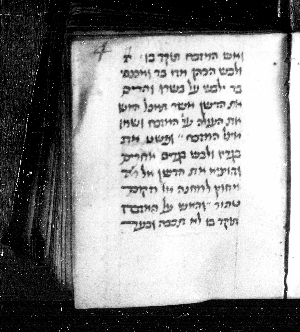 ואש המזבח תוקד בו
ולבש הכהן מדו בד ומכנסי
בד ילבש על בשרו והרים
את הדשן אשר תאכל האש
את העולה על המזבח ושמו
אצל המזבח ופשט את
בגדיו ולבש בגדים אחרים
והוציא את הדשן אל
מחוץ למחנה אל מקום
טהור והאש על המזבח
תוקד בו לא תכבה ובער